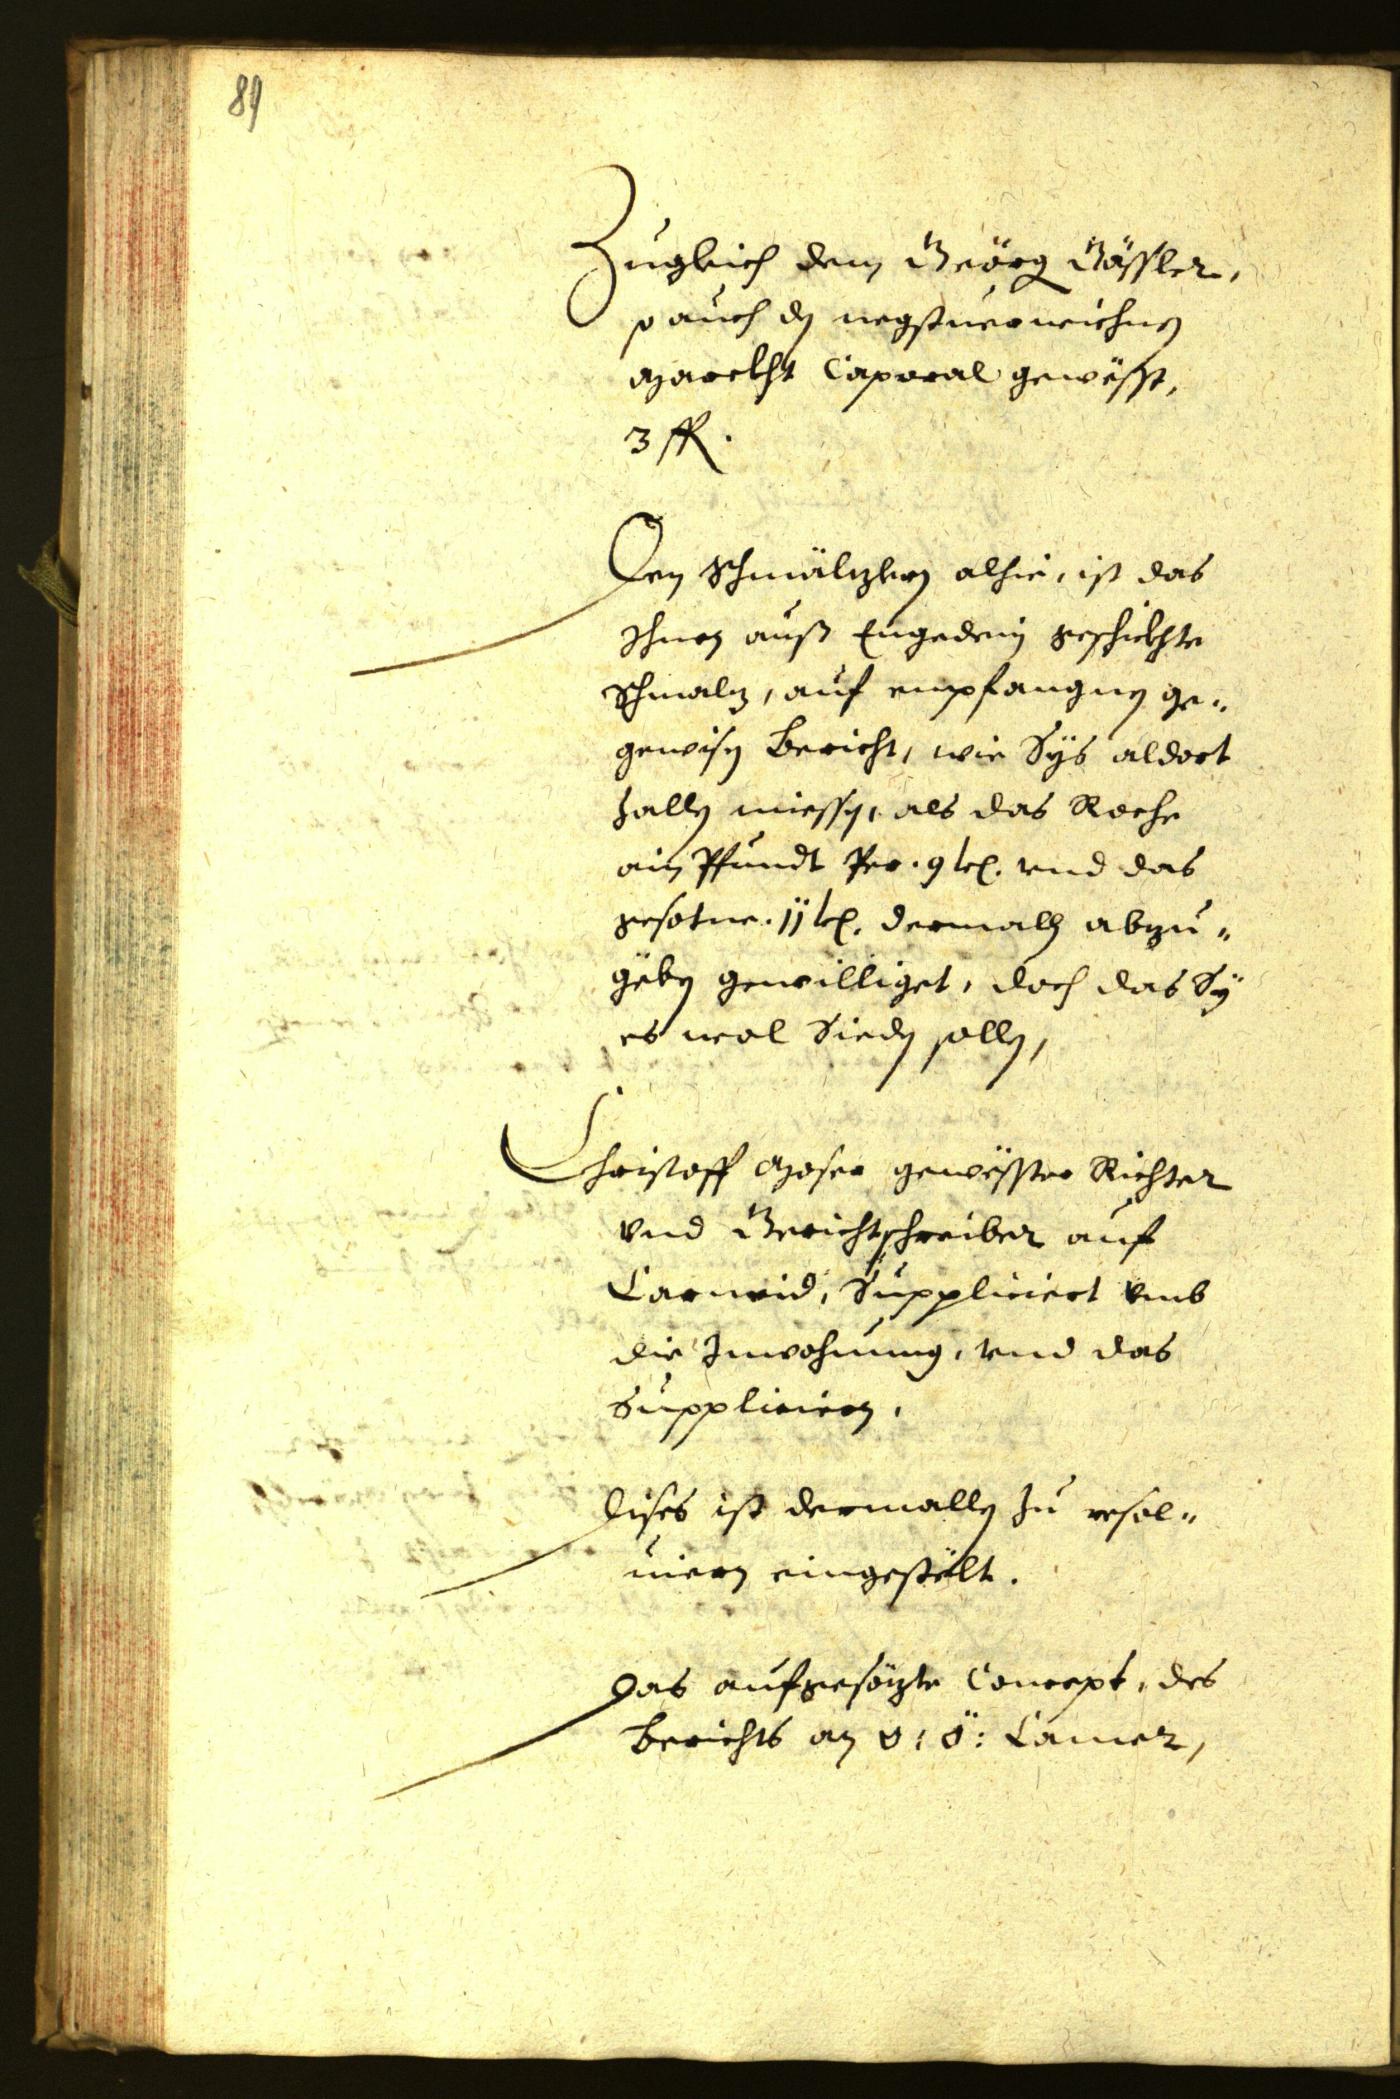 89
Zugleich dem Geörg Gässler,
so auch den negstuerwichnen
Marckht Caporal gewësst,
3 fl.
Den Schmälzlern alhie, ist das
Ihnen auß Engedein geschickhte
Schmalz, auf empfangnen ge„
gewisen Bericht, wie Sÿs aldort
zallen miessen, als das Roche
ain Pfundt Per. 9 kr. vnd das
gesotne. 11 kr. dermallen abzu„
gëben gewilliget, doch das Sÿ
es wol Sieden sollen,
Christoff Moser gewësster Richter
vnd Gerichtschreiber auf
Carneid, Suppliciert vmb
die Inwohnung, vnd das
Supplicieren.
Dises ist dermallen zu resol„
uiern eingestëlt.
Das aufgesözte Concept, des
Berichts an o: ö: Camer,